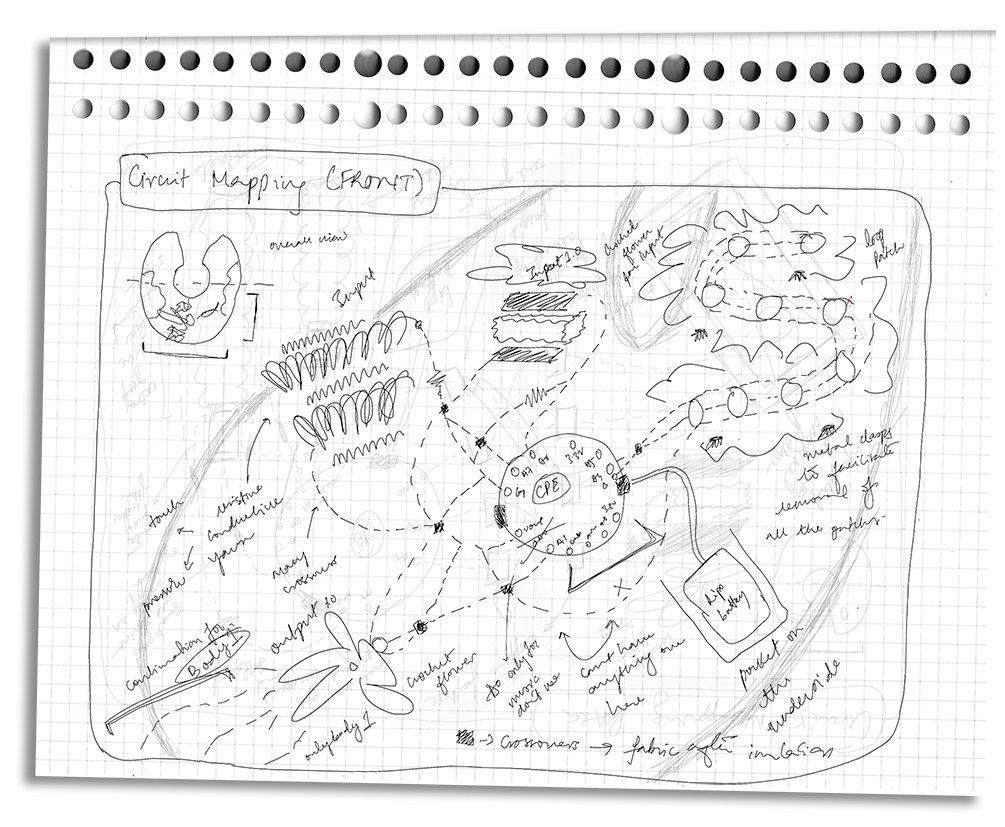 Circuit Mapping (FRONT)
overall view
Input
Input 1.0
crochet
flower
for input
loop
patch
metal clasps
to facilitate
removal of
all the patches.
3.3V
CPE
touch
pressure
resistive
conductive
yarn
many
crossovers
output
combination for
Body 1
crochet
flower
only body 1
A0 only for
music
don't use
can't have
anything
here
Lipo
battery
pocket on
the
underside
→ Crossovers → fabric after insulation